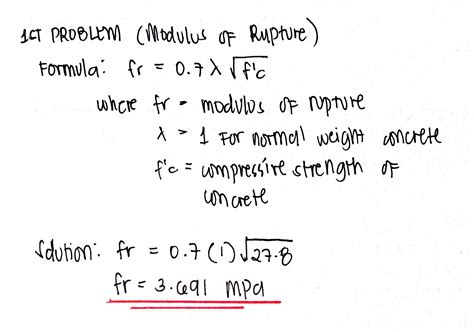 1ST PROBLEM (Modulus of Rupture)
Formula: fr = 0.7 λ √f'c
where fr = modulus of rupture
λ = 1 for normal weight concrete
f'c = compressive strength of
concrete
Solution: fr = 0.7 (1) √27.8
fr = 3.691 mpa